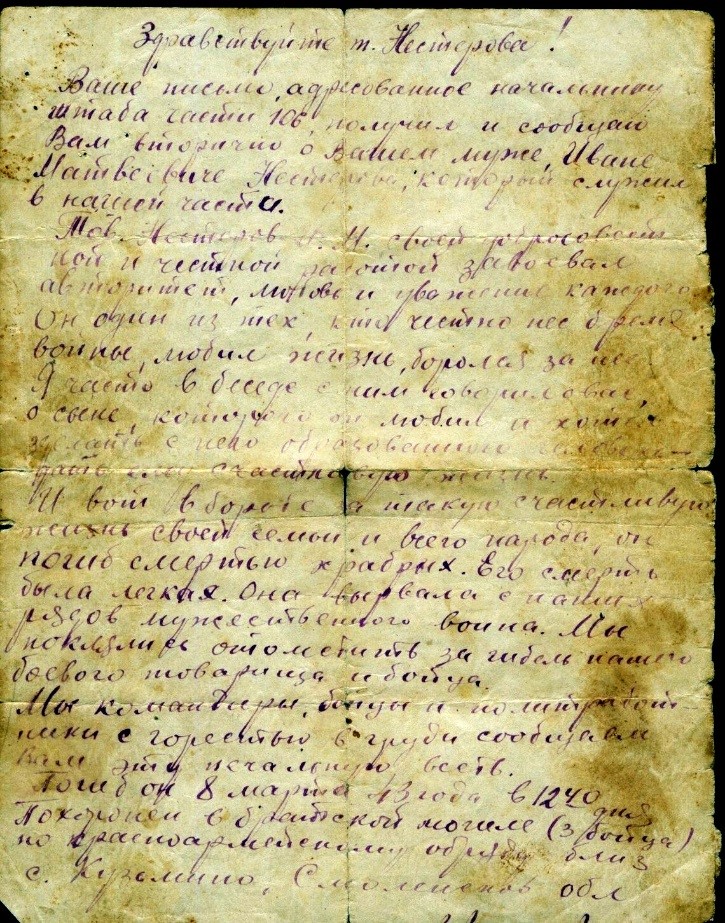 Здравствуйте т. Нестерова!
Ваше письмо, адресованное начальнику
штаба части 106, получил и сообщаю
Вам вторично о Вашем муже, Иване
Матвеевиче Нестерове, который служил
в нашей части.
Тов. Нестеров И. М. своей добросовест
ной и честной работой завоевал
авторитет, любовь и уважение каждого
Он один из тех, кто честно нес бремя
войны, любил жизнь, боролся за нее
Я часто в беседе с ним говорил
о сыне, которого он любил и хотел
сделать с него образованного человека
дать ему счастливую жизнь.
И вот в борьбе за такую счастливую
жизнь своей семьи и всего народа, он
погиб смертью храбрых. Его смерть
была легкая. Она вырвала с наших
рядов мужественного воина. Мы
поклялись отомстить за гибель нашего
боевого товарища и бойца.
Мы командиры, бойцы и политработ-
ники с горестью в груди сообщаем
Вам эту печальную весть.
Погиб он 8 марта 43 года в 1240
дня
Похоронен в братской могиле (3 бойца)
по красноармейскому обряду близ
с. Кузьмино, Смоленской обл